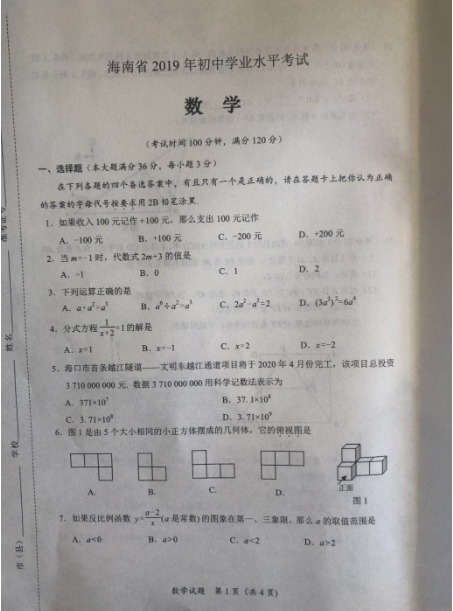 海南省 2019 年初中学业水平考试
数 学
(考试时间 100 分钟,满分 120 分)
一、选择题(本大题满分 36 分,每小题 3 分)
在下列各题的四个备选答案中,有且只有一个是正确的,请在答题卡上把你认为正确
的答案的字母代号按要求用 2B 铅笔涂黑.
1. 如果收入 100 元记作 +100 元,那么支出 100 元记作
A. -100 元 B. +100 元 C. -200 元 D. +200 元
2. 当 m=-1 时,代数式 2m+3 的值是
A. -1 B. 0 C. 1 D. 2
3. 下列运算正确的是
A. a·a²=a³ B. a⁶÷a²=a³ C. 2a²-a²=2 D. (3a²)²=6a⁴
4. 分式方程 1/(x+2)=1 的解是
A. x=1 B. x=-1 C. x=2 D. x=-2
5. 海口市首条越江隧道——文明东越江通道项目将于 2020 年 4 月份完工,该项目总投资
3 710 000 000 元. 数据 3 710 000 000 用科学记数法表示为
A. 371×10⁷ B. 37.1×10⁸
C. 3.71×10⁸ D. 3.71×10⁹
6. 图 1 是由 5 个大小相同的小正方体摆成的几何体,它的俯视图是
A. B. C. D.
正面
图 1
7. 如果反比例函数 y=(a-2)/x (a 是常数)的图象在第一、三象限,那么 a 的取值范围是
A. a<0 B. a>0 C. a<2 D. a>2
数学试题 第 1 页 (共 4 页)
姓名
学校
市(县)